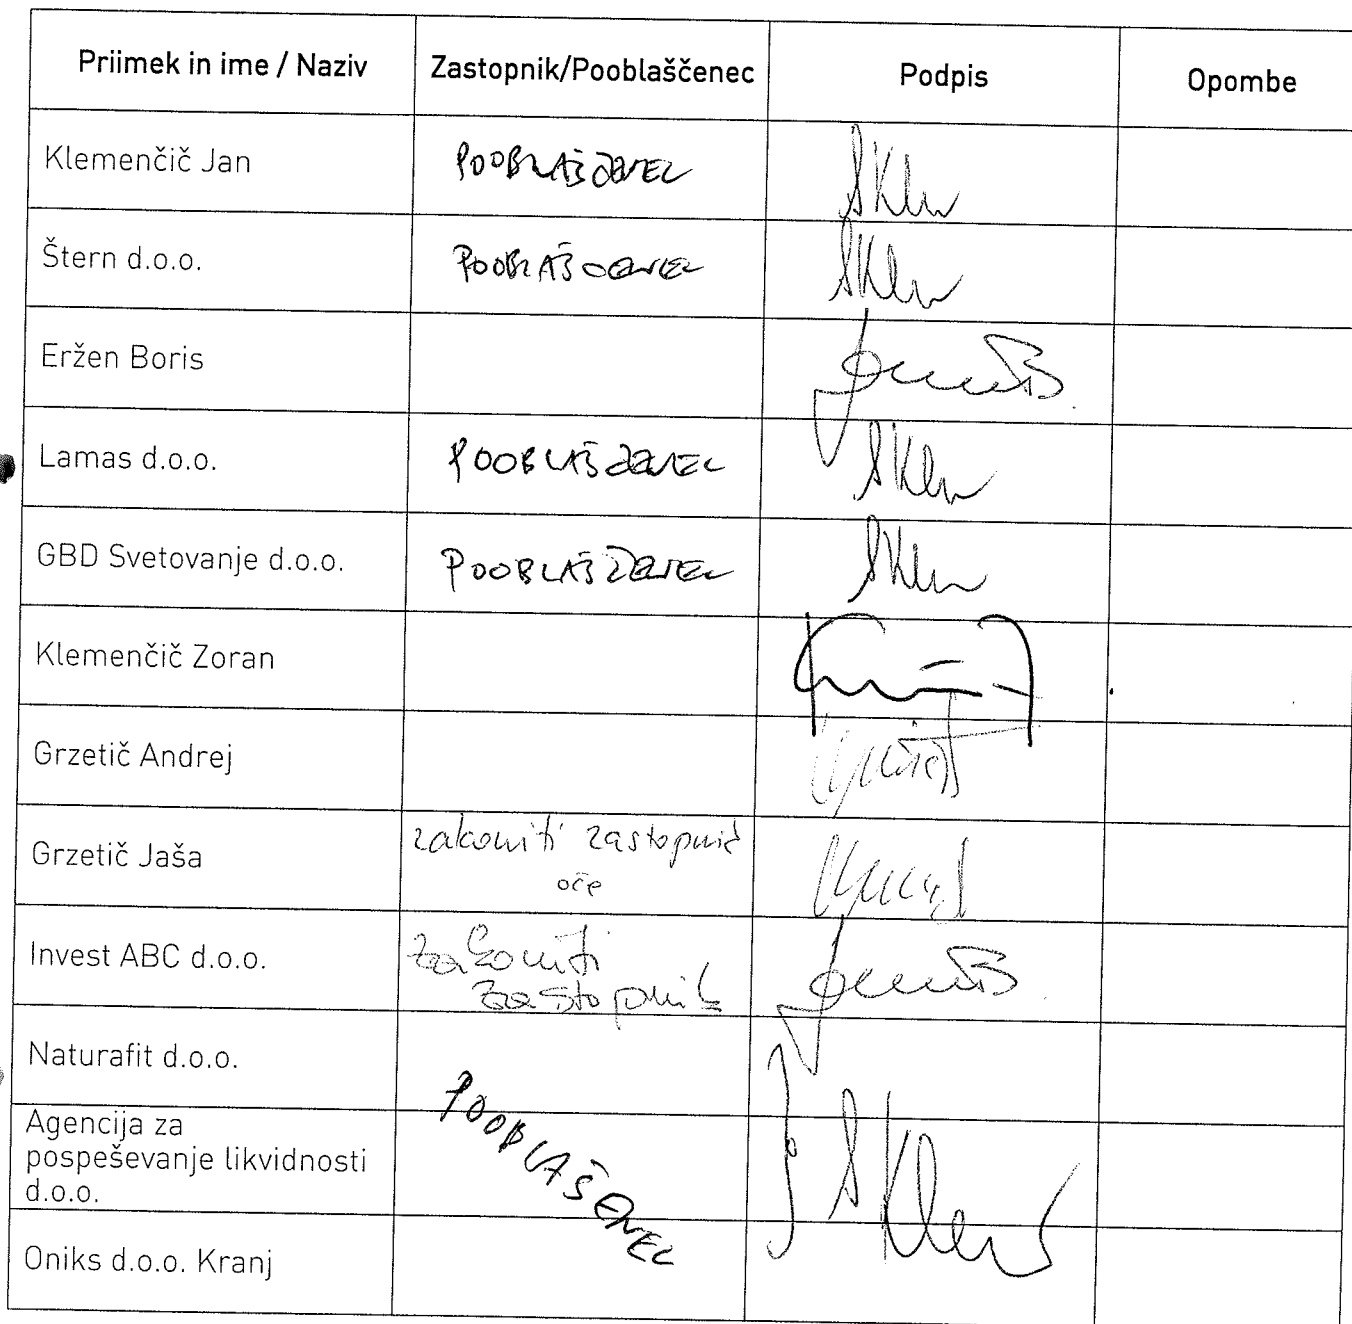 Priimek in ime / Naziv Zastopnik/Pooblaščenec Podpis Opombe
Klemenčič Jan POOBLAŠČENEC
Štern d.o.o. POOBLAŠČENEC
Eržen Boris
Lamas d.o.o. POOBLAŠČENEC
GBD Svetovanje d.o.o. POOBLAŠČENEC
Klemenčič Zoran
Grzetič Andrej
Grzetič Jaša zakoniti zastopnik
oče
Invest ABC d.o.o. zakoniti
zastopnik
Naturafit d.o.o.
POOBLAŠENEC
Agencija za
pospeševanje likvidnosti
d.o.o.
Oniks d.o.o. Kranj